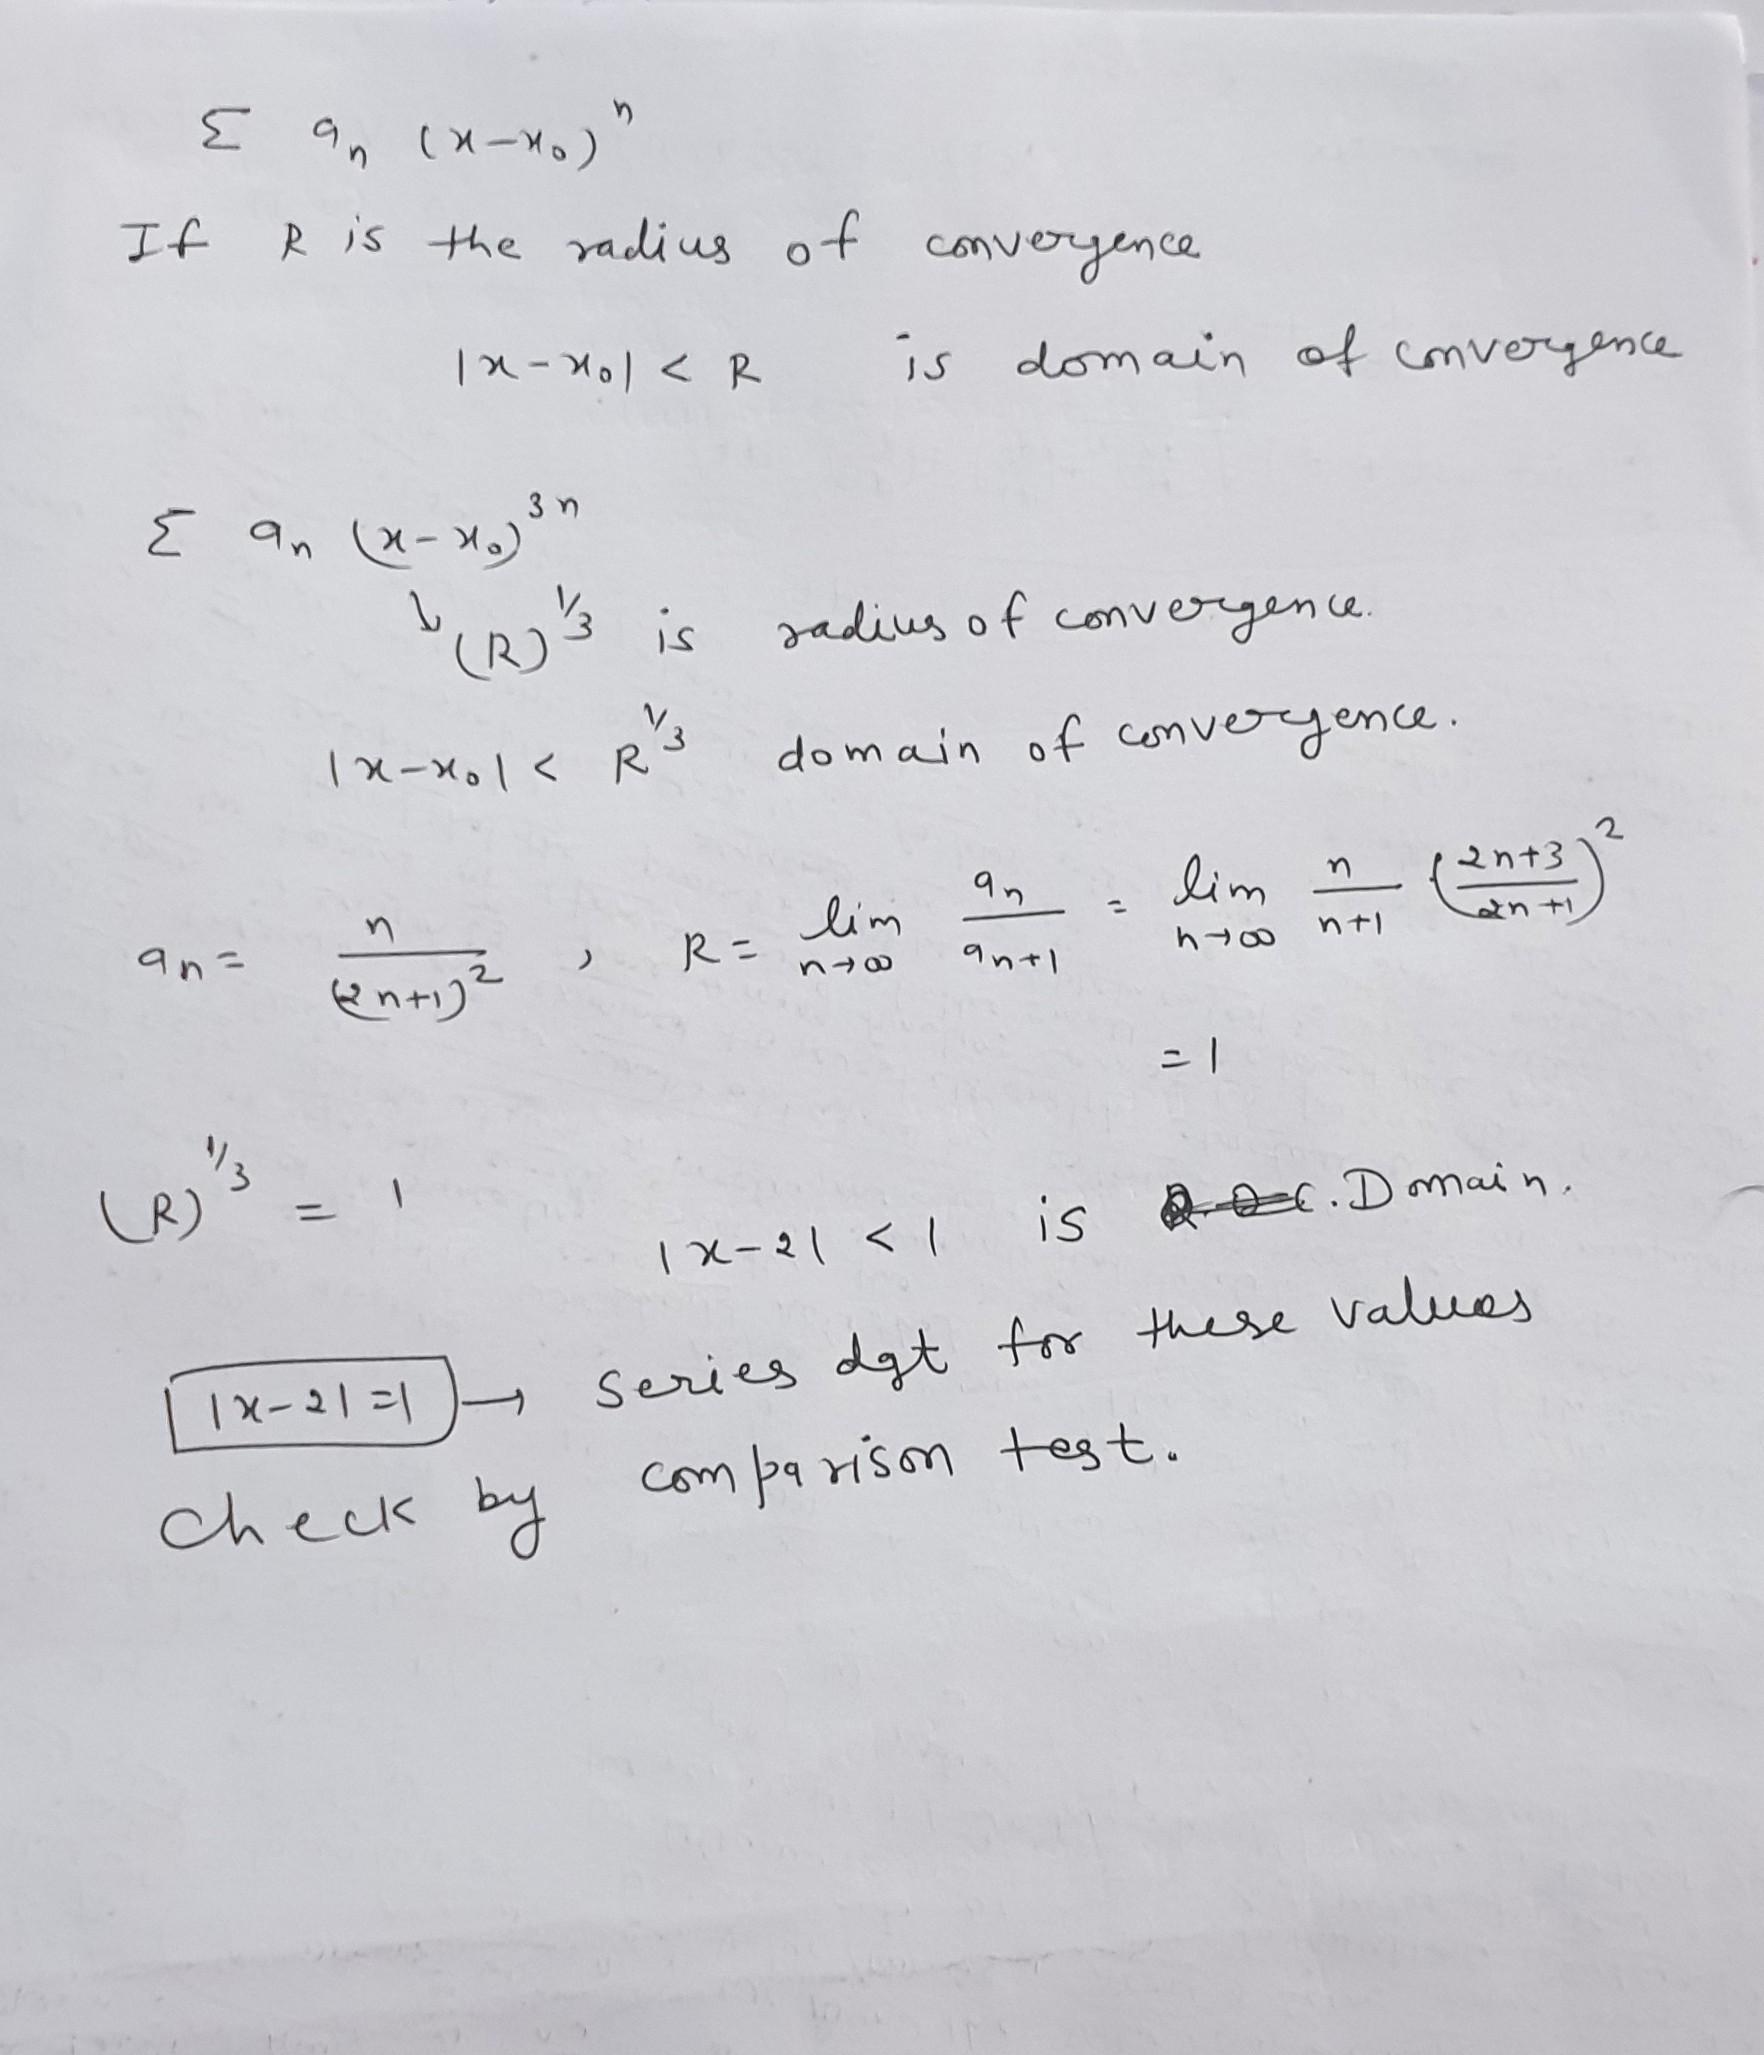 Σ aₙ (x-x₀)ⁿ
If R is the radius of convergence
|x-x₀| < R is domain of convergence
Σ aₙ (x-x₀)³ⁿ
↳ (R)^1/3 is radius of convergence.
|x-x₀| < R^1/3 domain of convergence.
aₙ = n/(2n+1)² , R = lim n→∞ aₙ/aₙ₊₁ = lim n→∞ n/n+1 (2n+3/2n+1)²
= 1
(R)^1/3 = 1
|x-2| < 1 is Domain.
|x-2|=1 → series dgt for these values
check by comparison test.